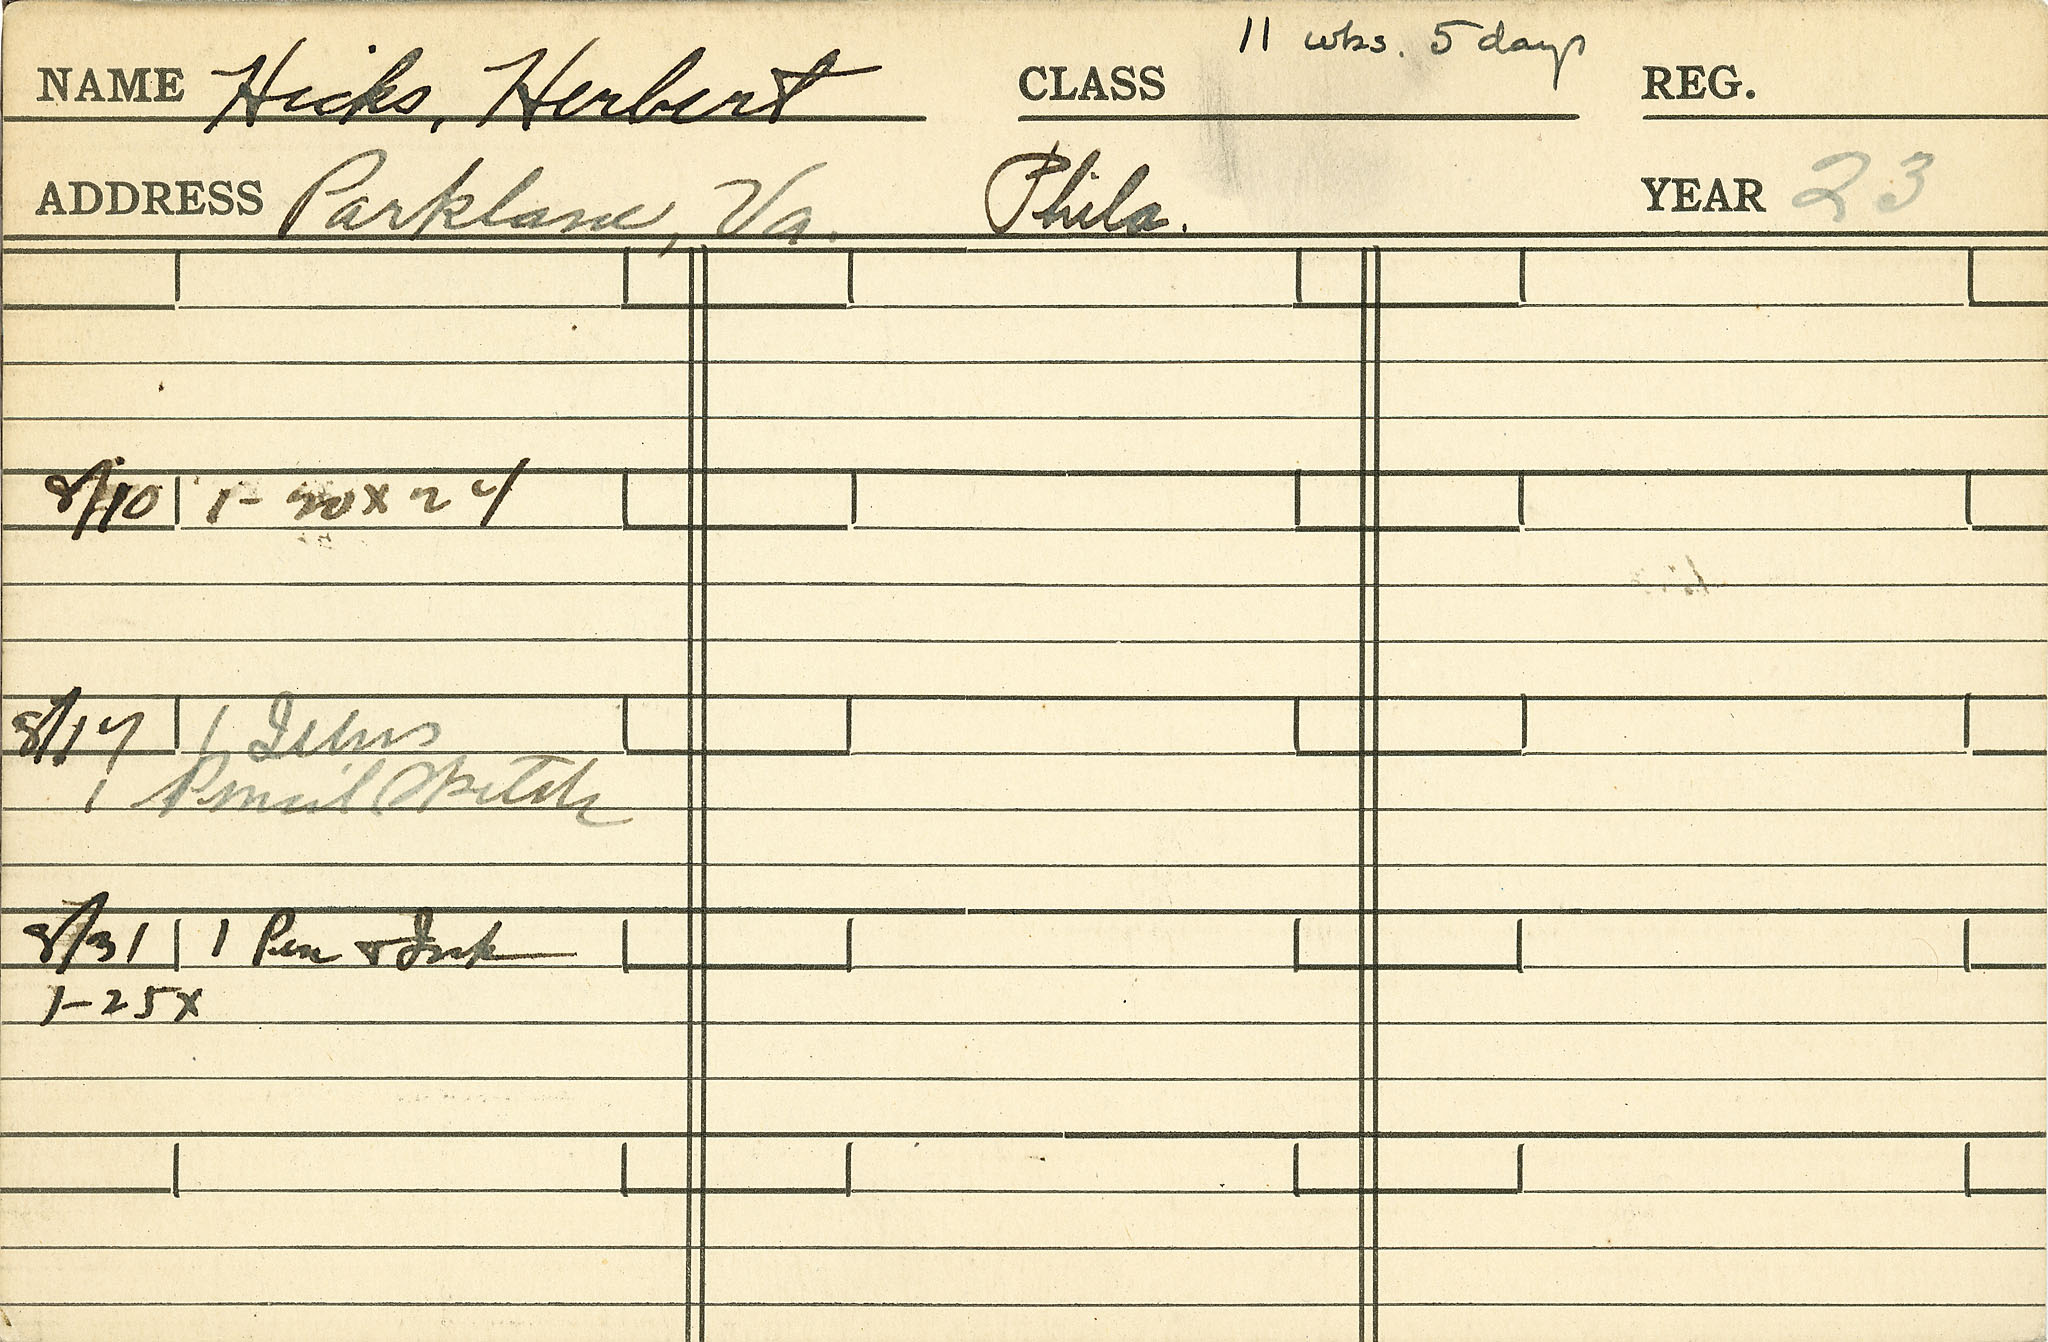 11 wks. 5 days
NAME Hicks, Herbert CLASS REG.
ADDRESS Parklane, Va. Phila. YEAR 23
8/10 1- 20 x 24
8/17
1 Pencil Sketch
8/31 1 Pen & Ink
1-25x